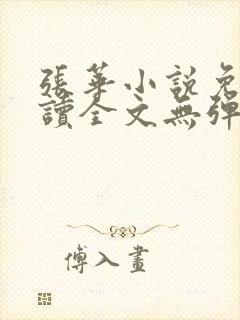 張華小說免
讀全文無彈
傅入畫